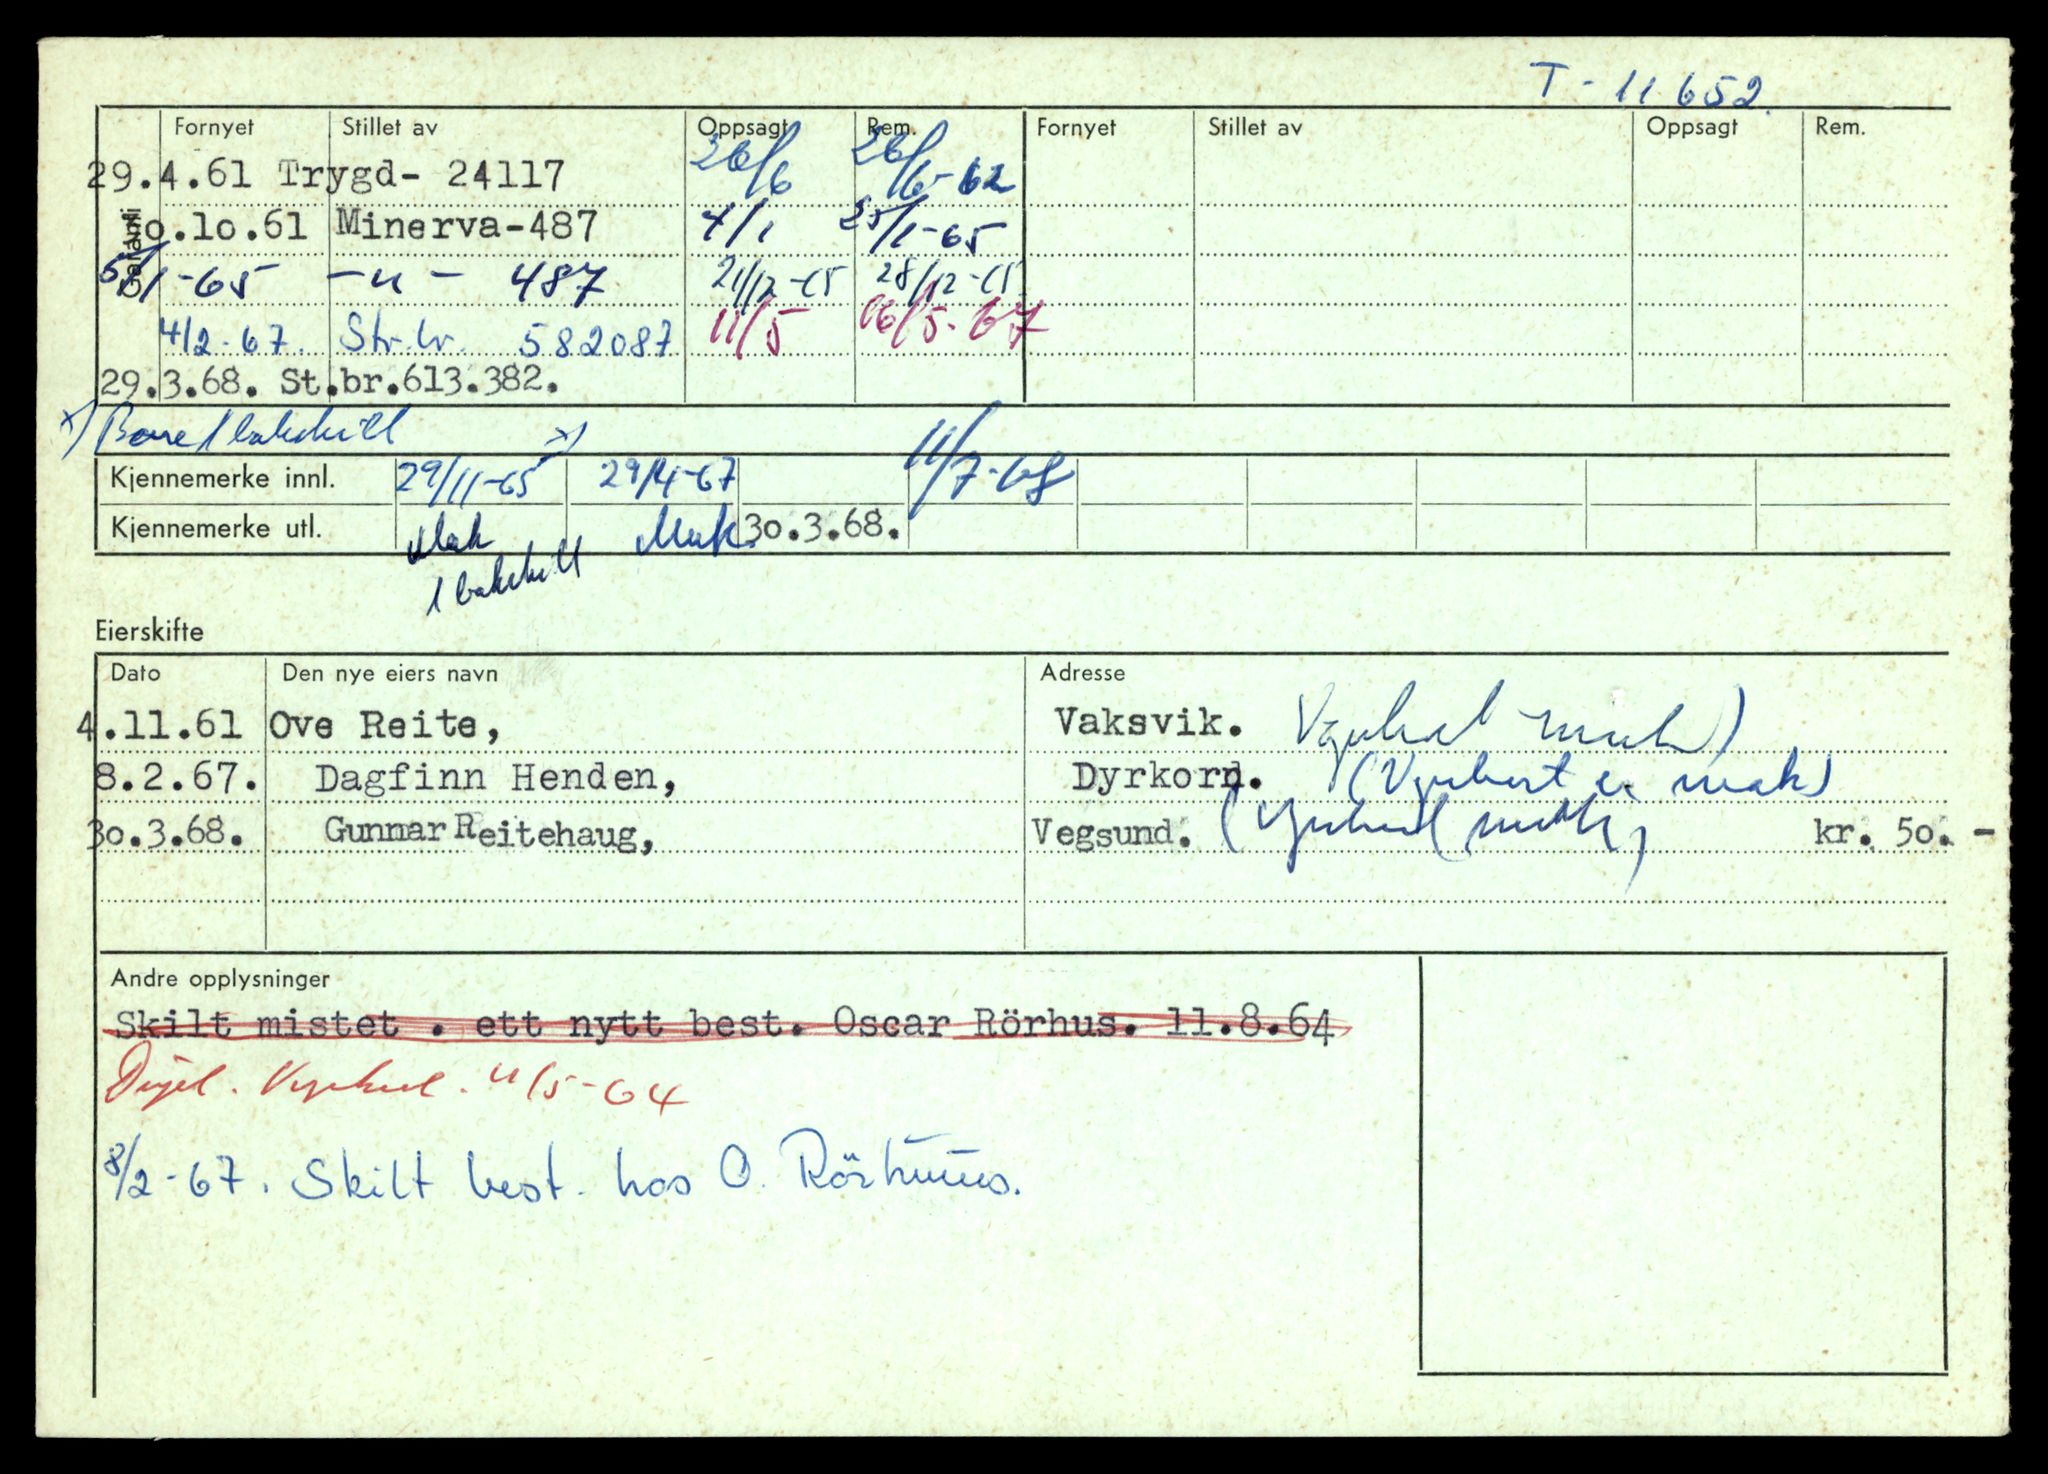 T - 11652.
Fornyet Stillet av Oppsagt Rem. Fornyet Stillet av Oppsagt Rem.
29.4.61 Trygd- 24117 26/6 26/6-62
Garanti
30.10.61 Minerva-487 4/1 25/1-65
5/1-65 -"- 487 21/12-65 28/12-65
4/2-67. Str.br. 582087 11/5 16/5-67
29.3.68. St.br.613.382.
x) Bare 1 bakskilt x)
Kjennemerke innl. 29/11-65 29/4-67 11/7-68
Kjennemerke utl. Mak Mak 30.3.68.
1 bakskilt
Eierskifte
Dato Den nye eiers navn Adresse
4.11.61 Ove Reite, Vaksvik. Vognkort mak)
8.2.67. Dagfinn Henden, Dyrkorn. (Vognkort er mak)
30.3.68. Gunnar Reitehaug, Vegsund. (Vognkort mak) kr. 50.-
Andre opplysninger
Skilt mistet . ett nytt best. Oscar Rörhus. 11.8.64
Dupl. Vognkort. 11/5-64
8/2-67. Skilt best. hos O. Rörhuus.